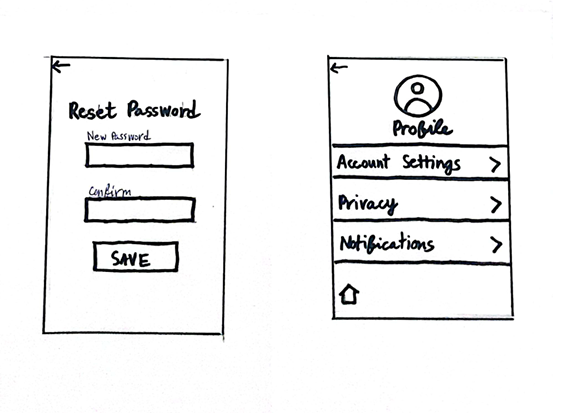 Reset Password
New Password
Confirm
SAVE
Profile
Account Settings
Privacy
Notifications